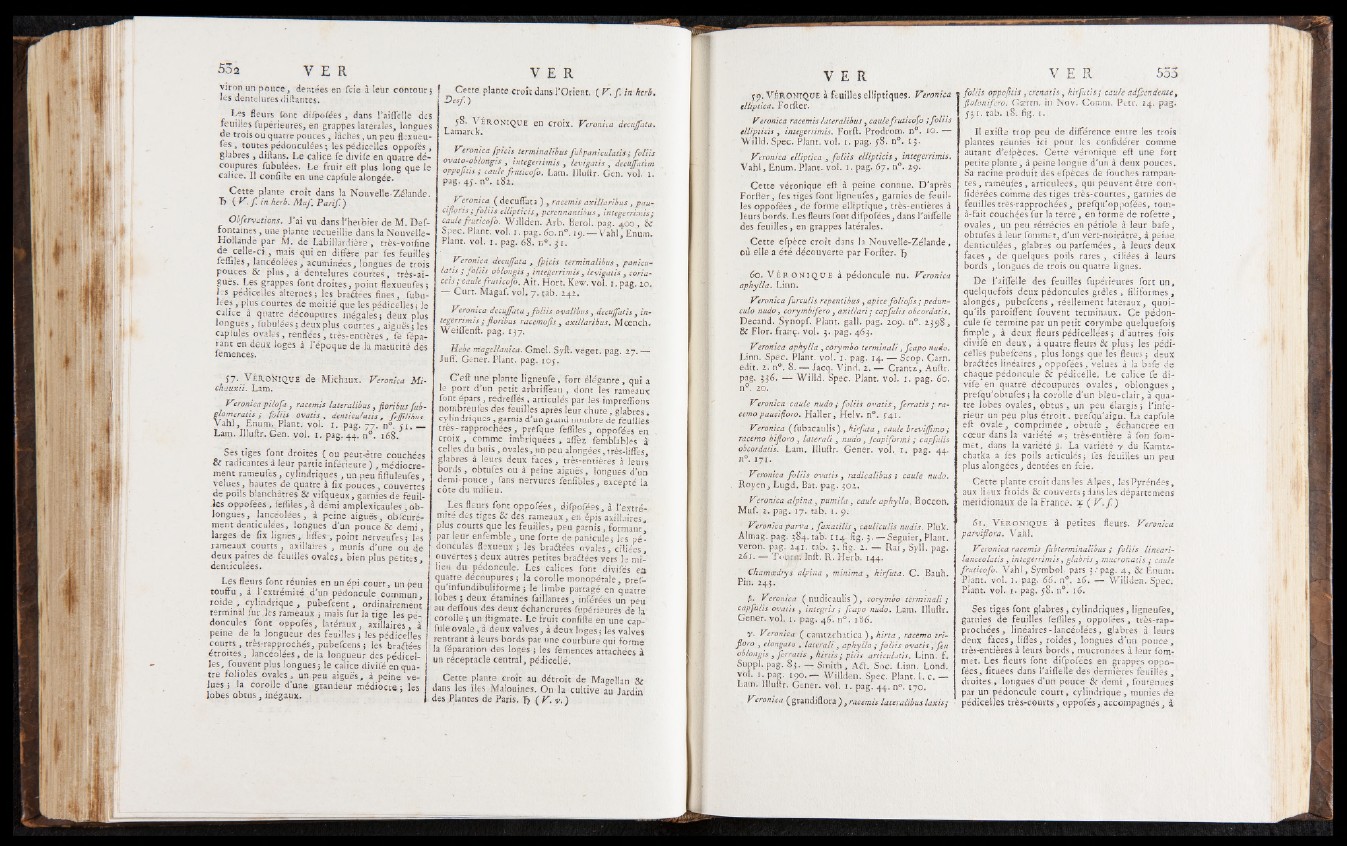 532 V E R
viron un pouce, dentées en scie à leur contour;
les dentelures distantes.
Les fleurs sont disposées, dans l'aisselle des
feuilles supérieures, en grappes latérales, longues
de trois ou quatre pouces, lâches, un peu flexueu-
ses, toutes pédonculées; les pédicelles opposés,
glabres, distans. Le calice se divise en quatre dé-
coupures subulées. Le fruit est plus long que le
calice. Il consiste en une capsule alongée.
Cette plante croît dans la Nouvelle-Zélande.
♄ (V. s. in herb. Mus. Paris.)
Observations. J'ai vu dans l'herbier de M. Des-
fontaines, une plante recueillie dans la Nouvelle-
Hollande par M. de Labillardière, très-voisine
de celle-ci, mais qui en diffère par ses feuilles
sessiles, lancéolées, acuminées, longues de trois
pouces & plus, à dentelures courtes, très-ai-
guës. Les grappes sont droites, point flexueuses;
les pédicelles alternes; les bractées fines, subu-
lées, plus courtes de moitié que les pédicelles; le
calice à quatre découpures inégales; deux plus
longues, subulées; deux plus courtes, aiguës; les
capsules ovales, renflées, très-entières, se sépa-
rant en deux loges à l'époque de la maturité des
semences.
57. VÉRONIQUE de Michaux. Veronica Mi-
chauxii. Lam.
Veronica pilosa, racemis lateralibus, floribus sub-
glomeratis; foliis ovatis, denticulatis, sessilibus
Vahl, Enum. Plant. vol. 1. pag. 77. n°. 51. —
Lam. Illustr. Gen. vol. 1. pag. 44. n°. 168.
Ses tiges sont droites (ou peut-être couchées
& radicantes à leur partie inférieure), médiocre-
ment rameuses, cylindriques, un peu fistuleuses,
velues, hautes de quatre à six pouces, couvertes
de poils blanchâtres & visqueux, garnies de feuil-
les opposées, sessiles, à demi amplexicaules, ob-
longues, lancéolées, à peine aiguës, obscuré-
ment denticulées, longues d'un pouce & demi,
larges de six lignes, lisses, point nerveuses; les
rameaux courts, axillaires, munis d'une ou de
deux paires de feuilles ovales, bien plus petites,
denticulées.
Les fleurs sont réunies en un épi court, un peu
touffu, à l'extrémité d'un pédoncule commun,
roide, cylindrique, pubescent, ordinairement
terminal sur les rameaux; mais sur la tige les pé-
doncules sont opposés, latéraux, axillaires, à
peine de la longueur des feuilles; les pédicelles
courts, très-rapprochés, pubescens; les bractées
étroites, lancéolées, de la longueur des pédicel-
les, souvent plus longues; le calice divisé en qua-
tre folioles ovales, un peu aiguës, à peine ve-
lues; la corolle d'une grandeur médiocre; les
lobes obtus, inégaux.
V E R
Cette plante croît dans l'Orient. (V. s. in herb.
Desf.)
58. VÉRONIQUE en croix. Veronica decussata.
Lamarck.
Veronica spicis terminalibus subpaniculatis; foliis
ovato-oblongis, integerrimis, levigatis, decussatim
oppositis; caule fruticoso. Lam. Illustr. Gen. vol. 1.
pag. 45. n°. 182.
Veronica (decussata), racemis axillaribus, pau-
cifloris; foliis ellipticis, perennantibus, integerrimis;
caule fruticoso. Willden. Arb. Berol. pag. 400, &
Spec. Plant. vol. 1. pag. 60. n°. 19. — Vahl, Enum.
Plant. vol. 1. pag. 68. n°. 31.
Veronica decussata, spicis terminalibus, panicu-
latis; foliis oblongis, integerrimis, levigatis, coria-
ceis; caule fruticoso. Ait. Hort. Kew. vol. 1. pag. 20.
— Curt. Magas. vol. 7. tab. 242.
Veronica decussata, foliis ovalibus, decussatis, in-
tegerrimis; floribus racemosis, axillaribus. Mœnch.
Weissenst. pag. 137.
Hebe magellanica. Gmel. Syst. veget. pag. 27. —
Juss. Gener. Plant. pag. 105.
C'est une plante ligneuse, fort élégante, qui a
le port d'un petit arbrisseau, dont les rameaux
sont épars, redressés, articulés par les impressions
nombreuses des feuilles après leur chute, glabres,
cylindriques, garnis d'un grand nombre de feuilles
très-rapprochées, presque sessiles, opposées en
croix, comme imbriquées, assez semblables à
celles du buis, ovales, un peu alongées, très-lisses,
glabres à leurs deux faces, très-entières à leurs
bords, obtuses ou à peine aiguës, longues d'un
demi-pouce, sans nervures sensibles, excepté la
côte du milieu.
Les fleurs sont opposées, disposées, à l'extré-
mité des tiges & des rameaux, en épis axillaires,
plus courts que les feuilles, peu garnis, formant,
par leur ensemble, une sorte de panicule; les pé-
doncules flexueux; les bractées ovales, ciliées,
ouvertes; deux autres petites bractées vers le mi-
lieu du pédoncule. Les calices sont divisés en
quatre découpures; la corolle monopétale, pres-
qu'infundibuliforme; le limbe partagé en quatre
lobes; deux étamines saillantes, insérées un peu
au dessous des deux échancrures supérieures de la
corolle; un stigmate. Le fruit consiste en une cap-
sule ovale, à deux valves, à deux loges; les valves
rentrant à leurs bords par une courbure qui forme
la séparation des loges; les semences attachées à
un réceptacle central, pédicellé.
Cette plante croît au détroit de Magellan &
dans les îles Malouines. On la cultive au Jardin
des Plantes de Paris. ♄ (V. v.)
V E R
59. VÉRONIQUE à feuilles elliptiques. Veronica
elliptica. Forster.
Veronica racemis lateralibus, caule fruticoso; foliis
ellipticis, integerrimis. Forst. Prodrom. n°. 10. —
Willd. Spec. Plant. vol. 1. pag. 58. n°. 13.
Veronica elliptica, foliis ellipticis, integerrimis.
Vahl, Enum. Plant. vol. 1. pag. 67. n°. 29.
Cette véronique est à peine connue. D'après
Forster, ses tiges sont ligneuses, garnies de feuil-
les opposées, de forme elliptique, très-entières à
leurs bords. Les fleurs sont disposées, dans l'aisselle
des feuilles, en grappes latérales.
Cette espèce croît dans la Nouvelle-Zélande,
où elle a été découverte par Forster. ♄
60. VÉRONIQUE à pédoncule nu. Veronica
aphylla. Linn.
Veronica surculis repentibus, apice foliosis; pedun-
culo nudo, corymbifero, axillari; capsulis obcordatis.
Decand. Synops. Plant. gall. pag. 209. n°. 2398,
& Flor. franç. vol. 3. pag. 463.
Veronica aphylla, corymbo terminali, scapo nudo.
Linn. Spec. Plant. vol. 1. pag. 14. — Scop. Carn.
edit. 2. n°. 8. — Jacq. Vind. 2. — Crantz, Austr.
pag. 336. — Willd. Spec. Plant. vol. 1. pag. 60.
n°. 20.
Veronica caule nudo; foliis ovatis, serratis; ra-
cemo paucifloro. Haller, Helv. n°. 541.
Veronica (subacaulis), hirsuta, caule brevissimo;
racemo bifloro, laterali, nudo, scapiformi; capsulis
obcordatis. Lam. Illustr. Gener. vol. 1. pag. 44.
n°. 171.
Veronica foliis ovatis, radicalibus; caule nudo.
Royen, Lugd. Bat. pag. 302.
Veronica alpina, pumila, caule aphyllo. Boccon.
Mus. 2. pag. 17. tab. 1. 9.
Veronica parva, saxatilis, cauliculis nudis. Pluk.
Almag. pag. 384. tab. 114. fig. 3. — Seguier, Plant.
veron. pag. 241. tab. 3. fig. 2. — Rai, Syll. pag.
261. — Tourn. Inst. R. Herb. 144.
Chamædrys alpina, minima, hirsuta. C. Bauh.
Pin. 243.
β. Veronica (nudicaulis), corymbo terminali;
capsulis ovatis, integris; scapo nudo. Lam. Illustr.
Gener. vol. 1. pag. 46. n°. 186.
γ. Veronica (camtzchatica), hirta, racemo tri-
floro, elongato, laterali, aphyllo; foliis ovatis, seu
oblongis, serratis, hirtis; pilis articulatis. Linn. f.
Suppl. pag. 83. — Smith, Act. Soc. Linn. Lond.
vol. 1. pag. 190. — Willden. Spec. Plant. l. c. —
Lam. Illustr. Gener. vol. 1. pag. 44. n°. 170.
Veronica (grandiflora), racemis lateralibus laxis;
V E R 533
foliis oppositis, crenatis, hirsutis; caule adscendente,
stolonifero. Gærtn. in Nov. Comm. Petr. 14. pag.
531. tab. 18. fig. 1.
Il existe trop peu de différence entre les trois
plantes réunies ici pour les considérer comme
autant d'espèces. Cette véronique est une fort
petite plante, à peine longue d'un à deux pouces.
Sa racine produit des espèces de souches rampan-
tes, rameuses, articulées, qui peuvent être con-
sidérées comme des tiges très-courtes, garnies de
feuilles très-rapprochées, presqu'opposées, tout-
à-fait couchées sur la terre, en forme de rosette,
ovales, un peu rétrécies en pétiole à leur base,
obtuses à leur sommet, d'un vert-noirâtre, à peine
denticulées, glabres ou parsemées, à leurs deux
faces, de quelques poils rares, ciliées à leurs
bords, longues de trois ou quatre lignes.
De l'aisselle des feuilles supérieures sort un,
quelquefois deux pédoncules grêles, filiformes,
alongés, pubescens, réellement latéraux, quoi-
qu'ils paroissent souvent terminaux. Ce pédon-
cule se termine par un petit corymbe quelquefois
simple, à deux fleurs pédicellées; d'autres fois
divisé en deux, à quatre fleurs & plus; les pédi-
celles pubescens, plus longs que les fleurs; deux
bractées linéaires, opposées, velues à la base de
chaque pédoncule & pédicelle. Le calice se di-
vise en quatre découpures ovales, oblongues,
presqu'obtuses; la corolle d'un bleu-clair, à qua-
tre lobes ovales, obtus, un peu élargis; l'infé-
rieur un peu plus étroit, presqu'aigu. La capsule
est ovale, comprimée, obtuse, échancrée en
cœur dans la variété α; très-entière à son som-
met, dans la variété β. La variété γ du Kamtz-
chatka a ses poils articulés; ses feuilles un peu
plus alongées, dentées en scie.
Cette plante croît dans les Alpes, les Pyrénées,
aux lieux froids & couverts; dans les départemens
méridionaux de la France. ♃ (V. s.)
61. VÉRONIQUE à petites fleurs. Veronica
parviflora. Vahl.
Veronica racemis subterminalibus; foliis lineari-
lanceolatis, integerrimis, glabris, mucronatis; caule
fruticoso. Vahl, Symbol. pars 3. pag. 4, & Enum.
Plant. vol. 1. pag. 66. n°. 26. — Willden. Spec.
Plant. vol. 1. pag. 58. n°. 16.
Ses tiges sont glabres, cylindriques, ligneuses,
garnies de feuilles sessiles, opposées, très-rap-
prochées, linéaires-lancéolées, glabres à leurs
deux faces, lisses, roides, longues d'un pouce,
très-entières à leurs bords, mucronées à leur som-
met. Les fleurs sont disposées en grappes oppo-
sées, situées dans l'aisselle des dernières feuilles,
droites, longues d'un pouce & demi, soutenues
par un pédoncule court, cylindrique, munies de
pédicelles très-courts, opposés, accompagnés, à